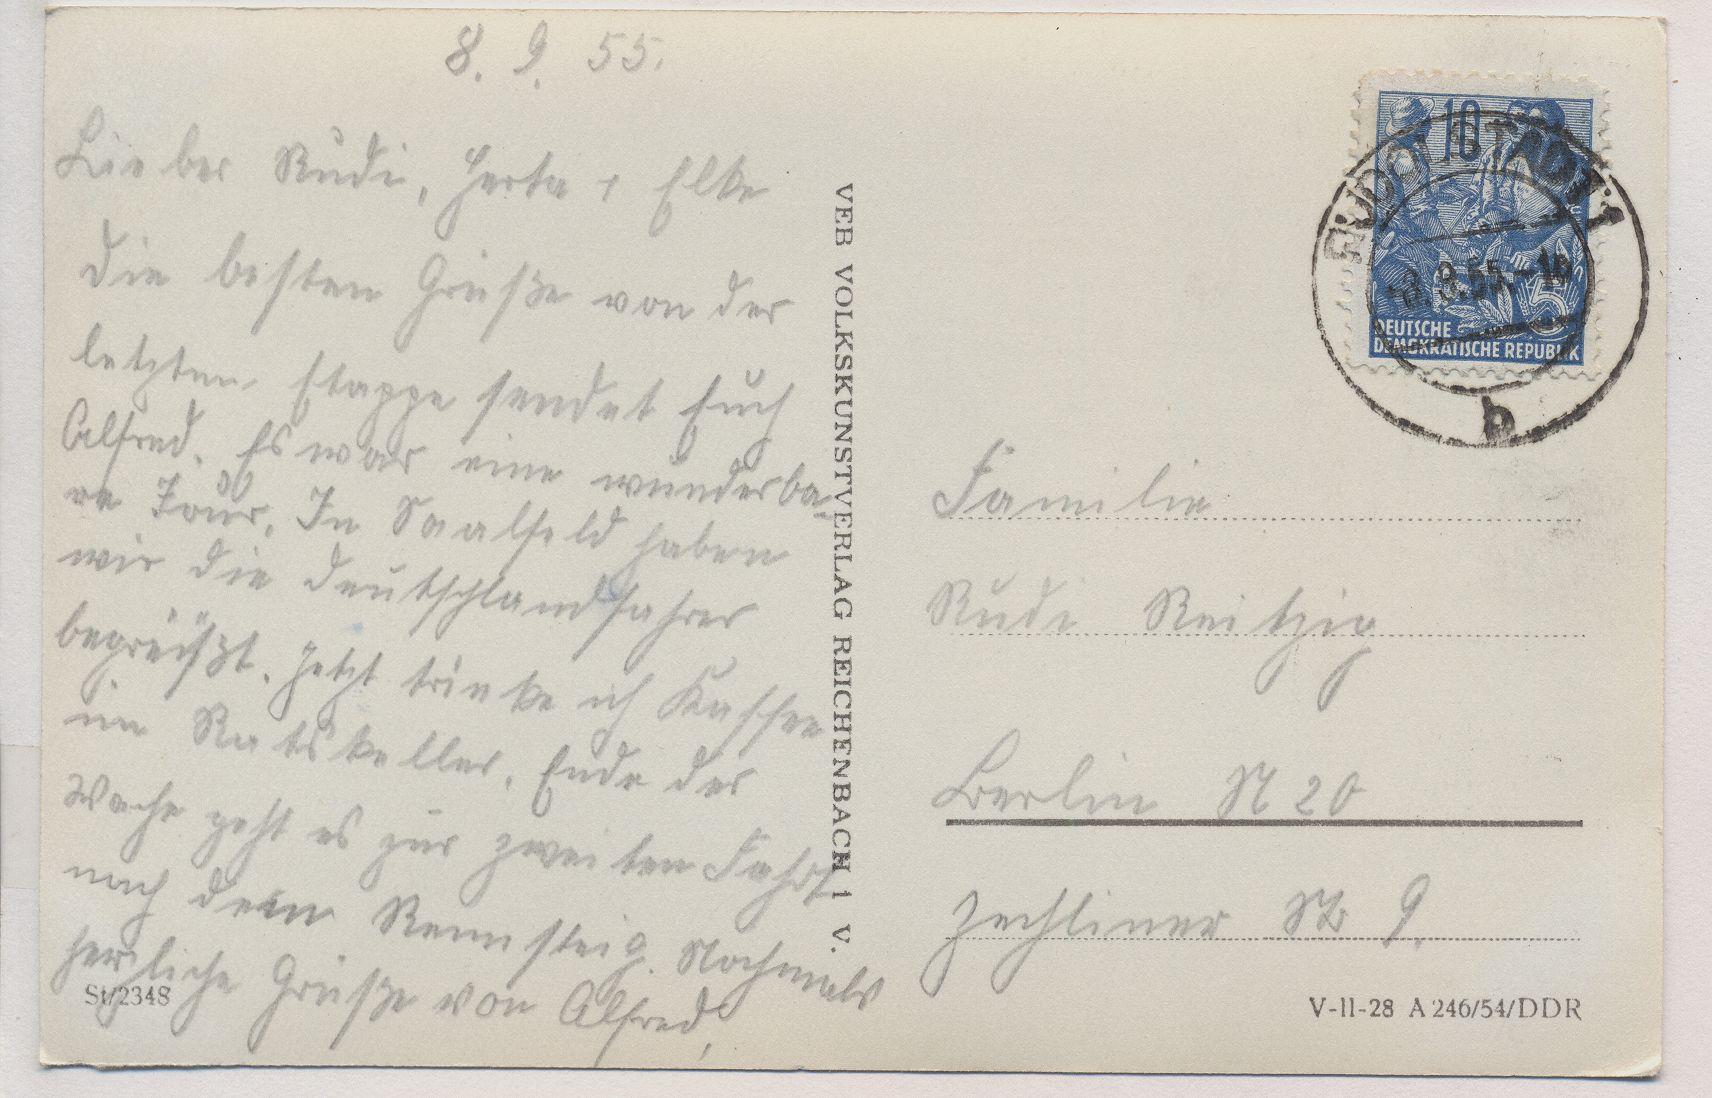 8. 9. 55.
Lieber Rudi, Herta + Elke
die besten Grüße von der
letzten Etappe sendet Euch
Alfred. Es war eine wunderba-
re Tour. In Saalfeld haben
wir die Deutschlandfahrer
begrüßt. Jetzt trinke ich Kaffee
im Ratskeller. Ende der
Woche geht es zur zweiten Fahrt
nach dem Rennsteig. Nochmals
herzliche Grüße von Alfred,
St/2348
VEB VOLKSKUNSTVERLAG REICHENBACH I V.
10
RUDOLSTADT 1
-8.9.55.-18
5
DEUTSCHE
DEMOKRATISCHE REPUBLIK
b
Familie
Rudi Reitzig
Berlin N 20
Zechliner Str 9.
V-11-28 A 246/54/DDR